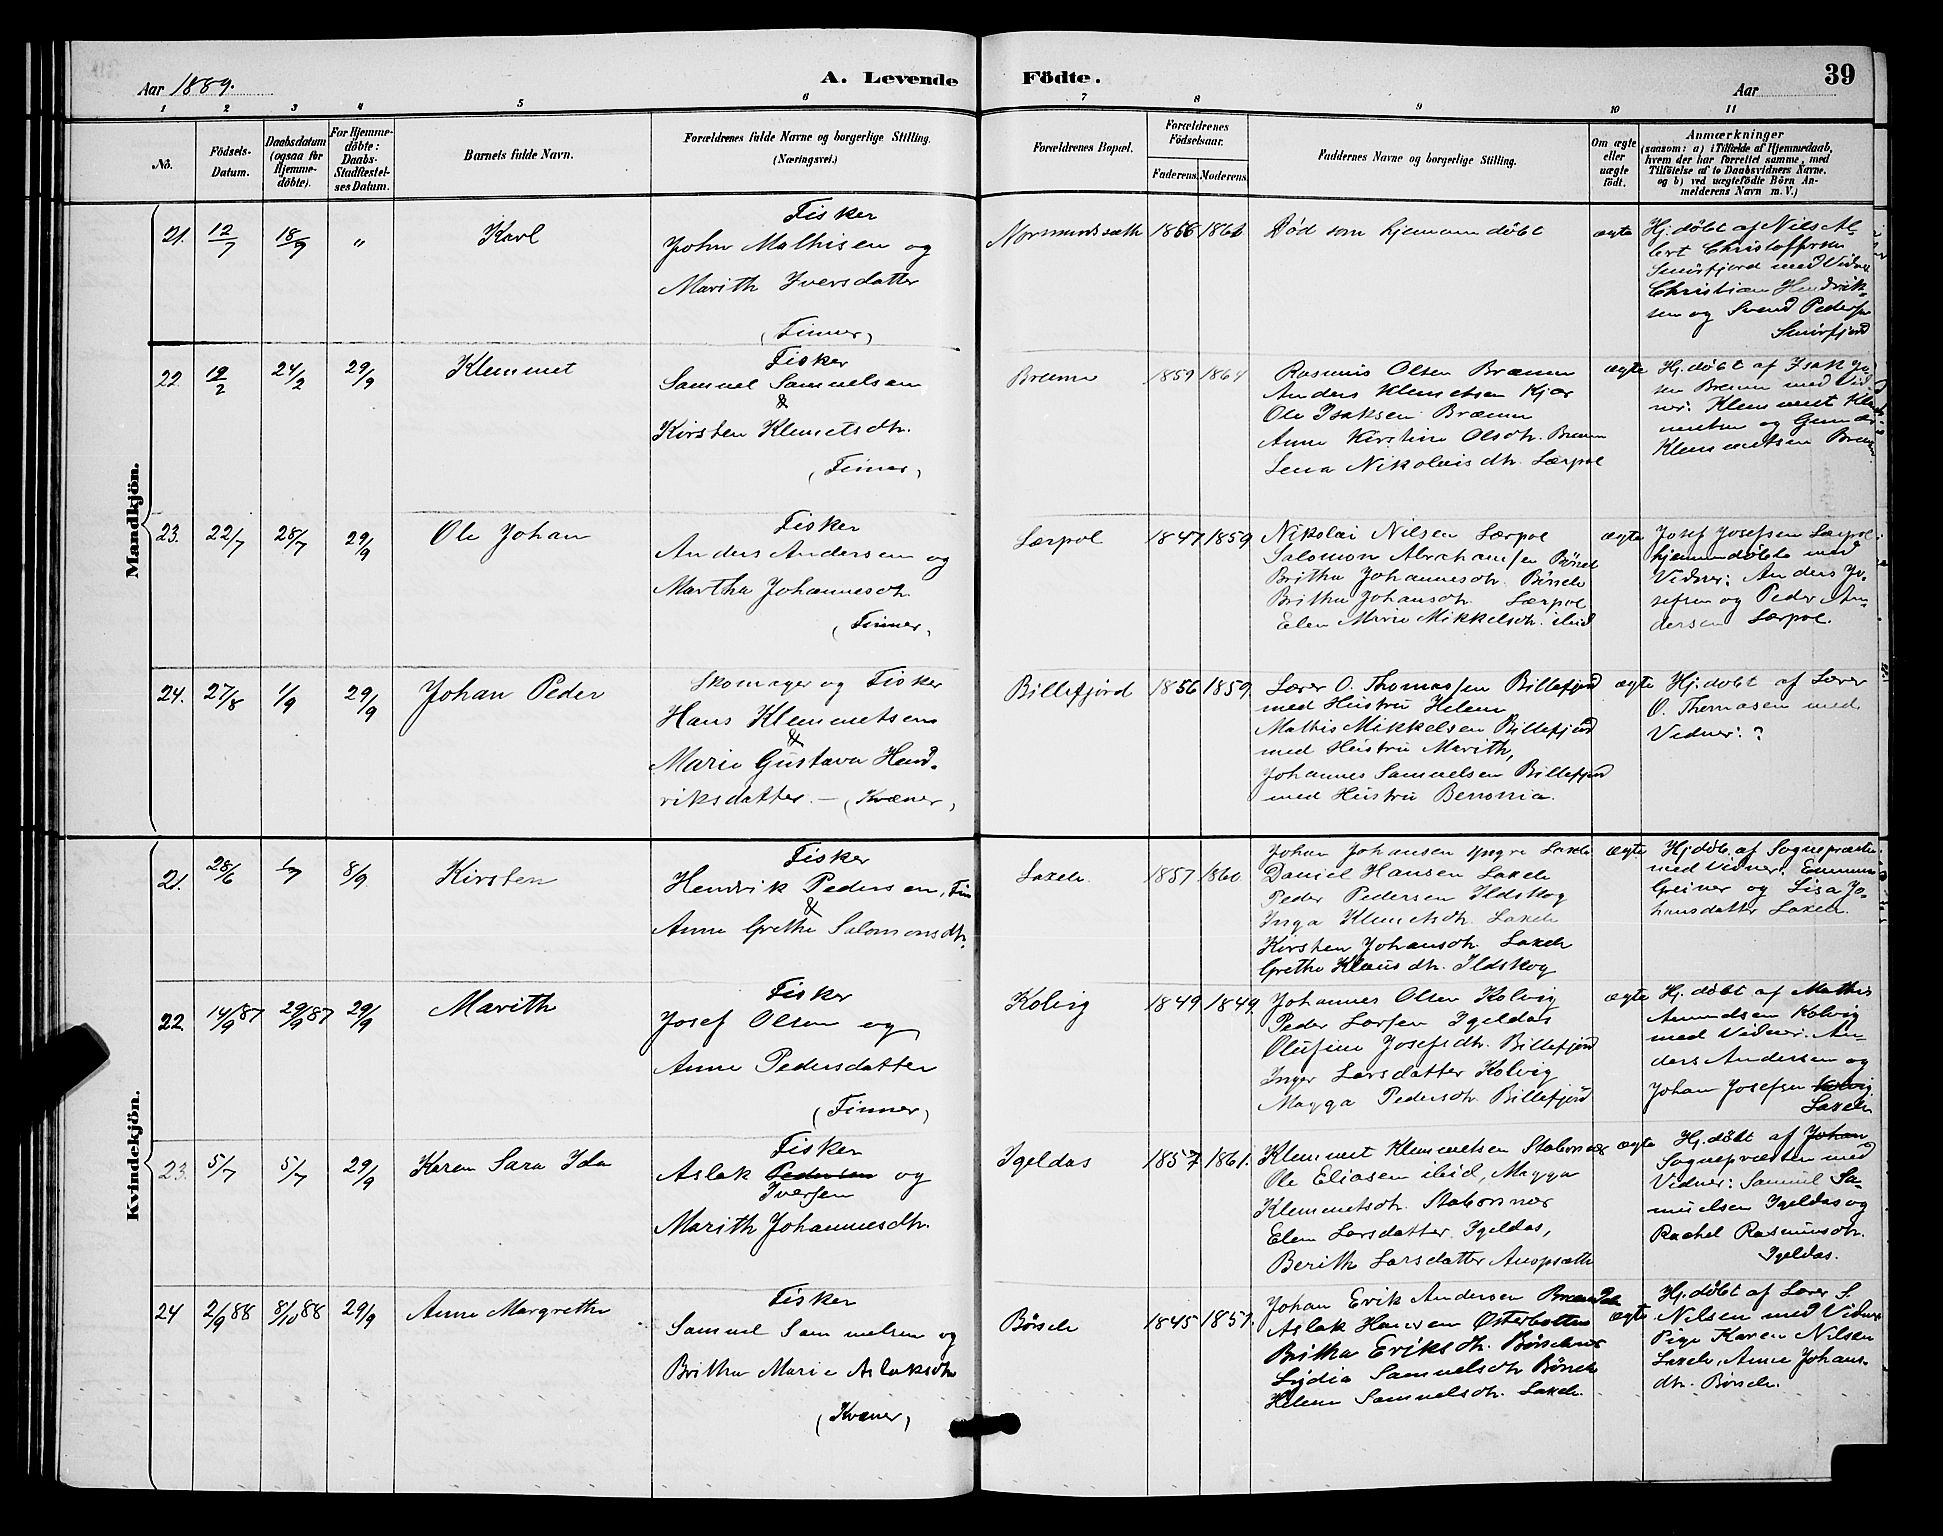 Aar 1889.
A. Levende Födte.
Aar
39
1 2 3 4 5 6 7 8 9 10 11
No.
Födsels-Datum.
Daabsdatum (ogsaa for Hjemmedöbte).
For Hjemmedöbte: Daabs-Stadfæstelses Datum.
Barnets fulde Navn.
Forældrenes fulde Navne og borgerlige Stilling. (Næringsvei.)
Forældrenes Bopæl.
Forældrenes Födselsaar.
Faderens. Moderens.
Faddernes Navne og borgerlige Stilling.
Om ægte eller uægte födt.
Anmærkninger
(saasom: a) i Tilfælde af Hjemmedaab,
hvem der har forrettet samme, med
Tilföielse af to Daabsvidners Navne.
og b) ved uægtefödte Börn An-
melderens Navn m. V.)
Mandkjön.
21. 12/7 18/9 "
Karl
Fisker
John Mathisen og
Marith Iversdatter
(Finner)
1866
Död som hjemmedöbt
ægte
Hj. döbt af Nils Al-
bert Christoffersen
Smörfjord med Vidner
Christian Hendrik-
sen og Svend Pedersen
Smörfjord
22. 19/2 24/2 29/9
Klemmet
Fisker
Samuel Samuelsen
&
Kirsten Klemetsdtr.
(Finner)
Brenna
1859 1864
Rasmus Olsen Brænna
Anders Klemetsen Kjær
Ole Isaksen Brænna
Anne Kirstine Olsdtr. Brænna
Lena Nikolaisdtr. Lærpol
ægte
Hj. döbt af Isak
sen Brenna med Vid
ner: Klemmet Kle
metsen og Gunder
Klemmetsen Brenna
23. 22/7 28/7 29/9
Ole Johan
Fisker
Anders Andersen og
Martha Johannesdtr.
(Finner)
Lærpol
1847 1859
Nikolai Nilsen Lærpol
Salomon Abrahamsen Börsele
Britha Johannesdtr. Börsele
Britha Johansdtr. Lærpol
Elen Marie Mikkelsdtr. ibid
ægte
Josef Josefsen Lærpol
hjemmedöbte med
Vidner: Anders Jo-
sefsen og Peder An-
dersen Lærpol.
24. 27/8 1/9 29/9
Johan Peder
Skomager og Fisker
Hans Klemmetsen
&
Marie Gustava Hend-
riksdatter. — (Kvæner)
Billefjord
1856 1859.
Lærer O. Thomassen Billefjord
med Hustru Helene
Mathis Mikkelsen Billefjord
med Hustru Marith,
Johannes Samuelsen Billefjord
med Hustru Benonia.
ægte
Hj. döbt af Lærer
O. Thomasen med
Vidner: ?
Kvindekjön.
21. 28/6 1/7 8/9
Kirsten
Fisker
Hendrik Pedersen, Fin
&
Anne Grethe Salomonsdtr.
Laxelv
1857 1860
Johan Johansen yngre Laxelv
Daniel Hansen Laxelv
Peder Pedersen Ildskog
Inga Klemetsdtr. Laxelv
Kirsten Johansdtr. Laxelv
Grethe Klausdtr. Ildskog
ægte
Hj. döbt af Sognepræsten
med Vidner: Emma
Greiner og Lisa Jo-
hansdatter Laxelv.
22. 14/9 87 29/9 87 29/9
Marith
Fisker
Josef Olsen og
Anne Pedersdatter
(Finner)
Kolvig
1849 1849.
Johannes Olsen Kolvig
Peder Larsen Igeldas
Olufine Josefsdtr. Billefjord
Inger Larsdatter Kolvig
Magga Pedersdtr. Billefjord
ægte
Hj. döbt af Mathis
Amundsen Kolvig
med Vidner: An-
ders Andersen og
Johan Josefsen Kolvig
Laxelv
23. 5/7 5/7 29/9
Karen Sara Ida
Fisker
Aslak Pedersen og
Iversen
Marith Johannesdtr.
Igeldas
1857 1861.
Klemmet Klemmetsen Stabursnæs
Ole Eliasen ibid, Magga
Klemmetsdtr. Stabursnæs
Elen Larsdatter Igeldas,
Berith Larsdatter
ægte
Hj. döbt af Johan
Sognepræsten med
Vidner: Samuel Sa-
muelsen Igeldas og
Rachel Rasmusdtr.
Igeldas.
24 2/9 88 8/10 88 29/9
Anne Margrethe
Fisker
Samuel Samuelsen og
Britha Marie Aslaksdtr
(Kvæner)
Börselv
1845 1851.
Johan Erik Andersen
Aslak Hansen Österbotten
Britha Eriksdtr. Börselv
Lydia Samuelsdtr Börselv
Helene Samuelsdtr. Laxelv.
ægte
Hj. döbt af Lærer S.
Nilsen med Vidner
Pige Karen Nilsen
Laxelv, Anne Johans-
dtr. Börselv.